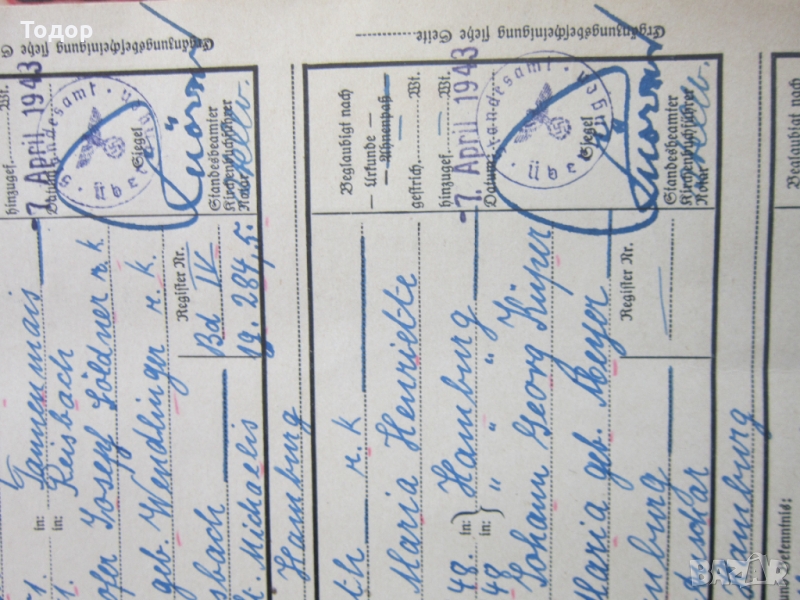 Todop
Ergänzungsbescheinigung siehe Seite
hinzugef. Wt.
7. April 1943
Datum
Siegel
Standesbeamter
Kirchenbuchführer
Notar
in: Tannenmais
in: Reisbach
Josef Söldner r. k.
geb. Wendlinger r. k.
Register Nr.
Bd IV
19. 284, 5.
sbach
t. Michaelis
Hamburg
Ergänzungsbescheinigung siehe Seite
Beglaubigt nach
– Urkunde –
– Ahnenpaß –
gestrich. Wt.
hinzugef. Wt.
7. April 1943
Datum
Siegel
Standesbeamter
Kirchenbuchführer
Notar
th. r. k
Maria Henriette
48. in: Hamburg
48 in: " " "
Johann Georg Küper
Maria geb. Meyer
Register Nr.
mburg
Hamburg
Beglau
Bekenntnis:
BAZAR